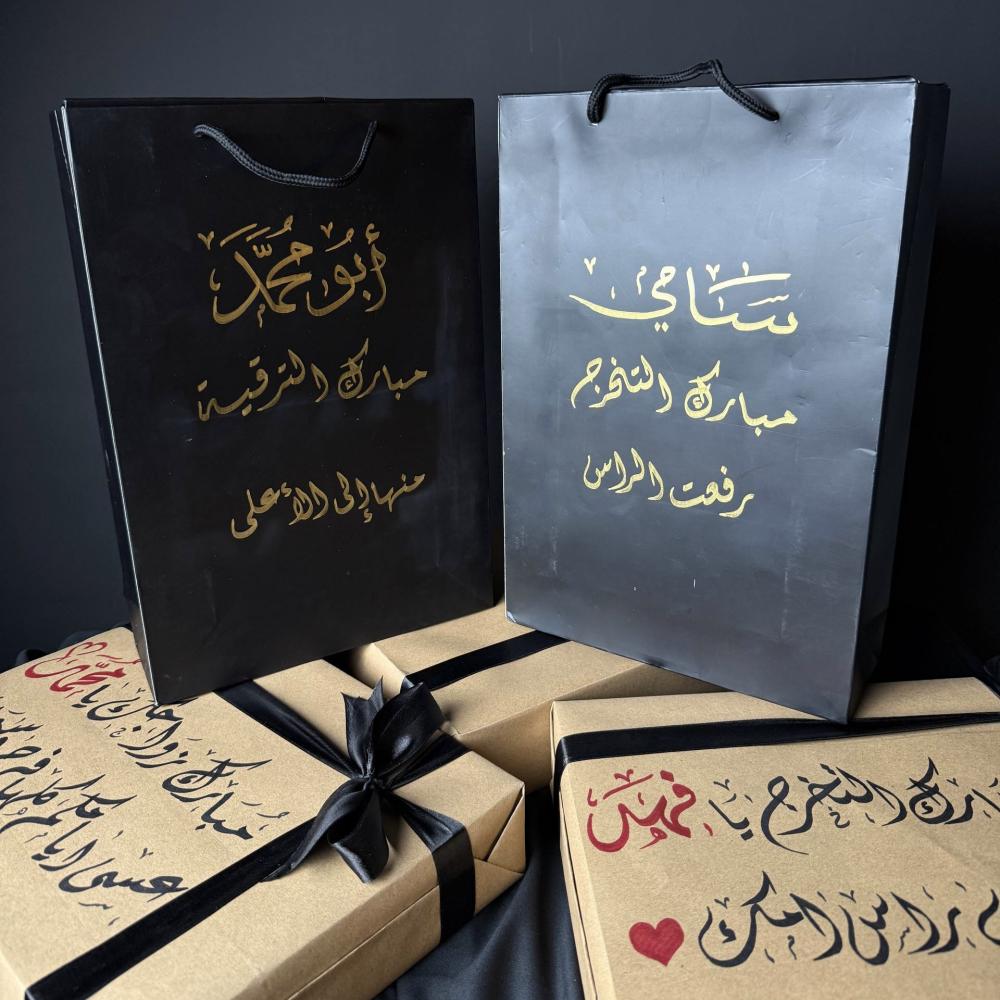 أبُو مُحمَّد
مبارك الترقية
منها إلى الأعلى
سامي
مبارك التخرج
رفعت الراس
مبارك زواجك يا محمد
عسى ايامكم كلها فرح
التخرج يا فهد
راس امك